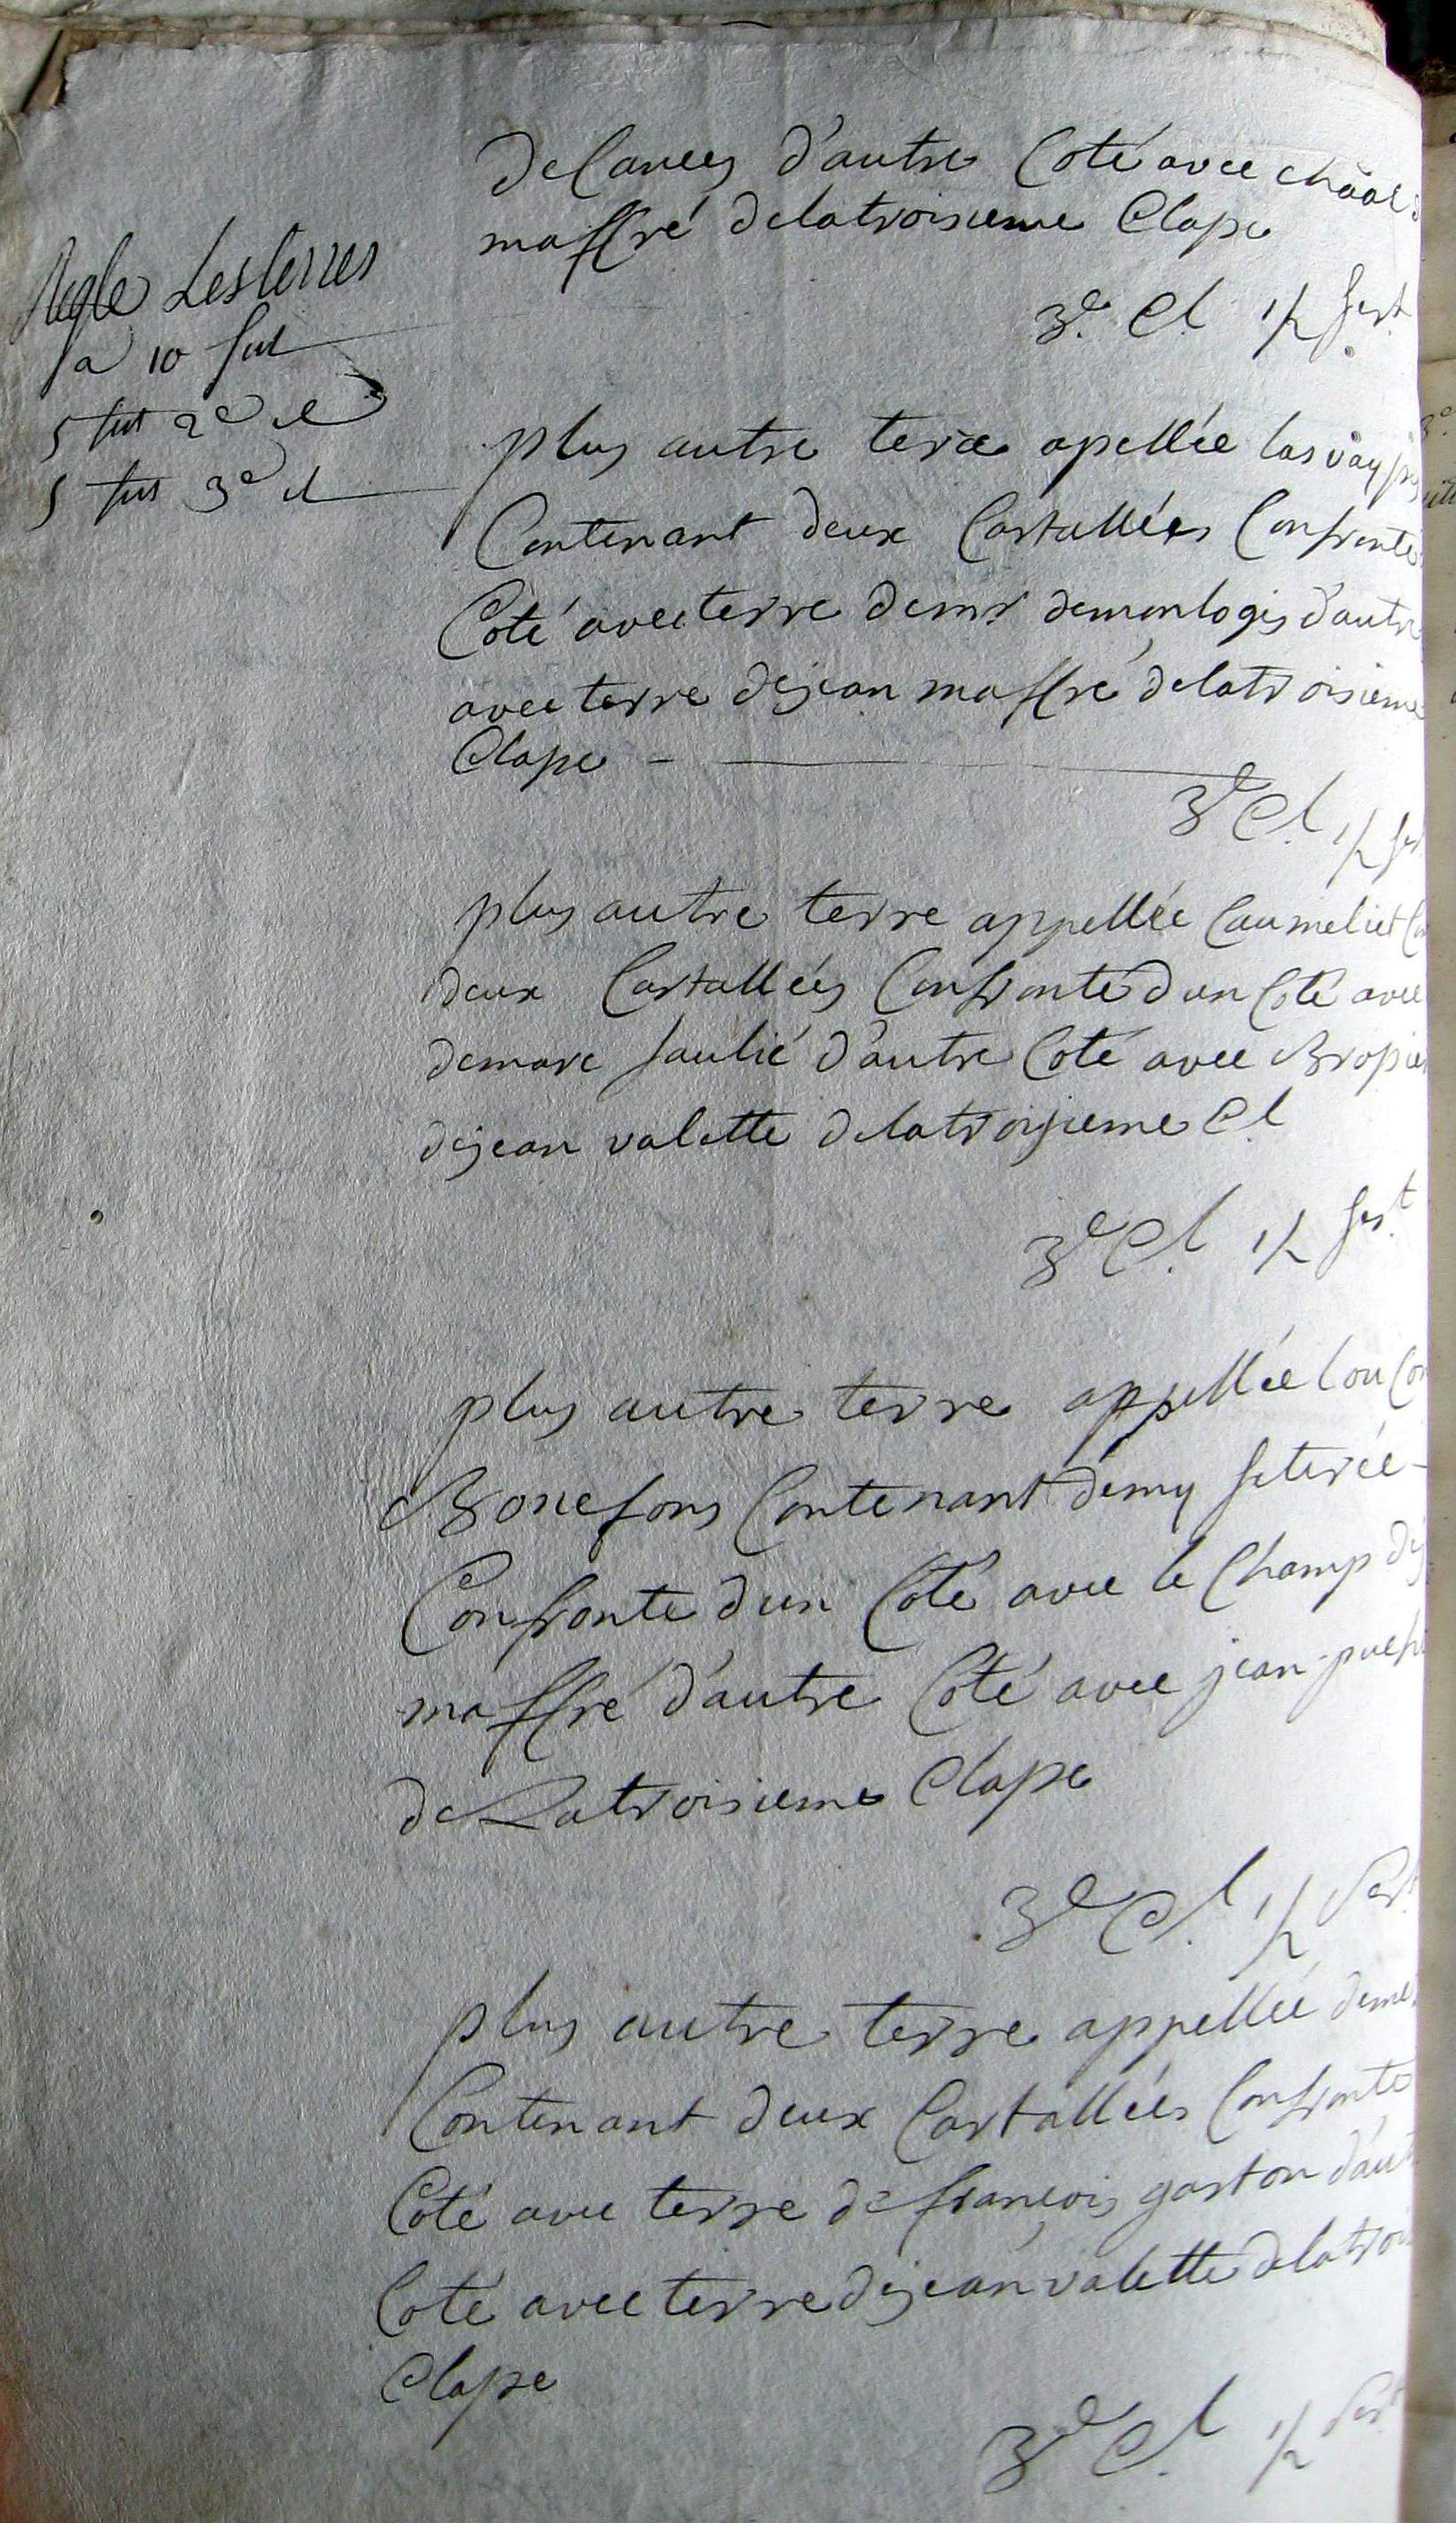 d'autre Coté avec
maffré delatroisieme Clape
3e. Cl. 1/2 sest
Regle Les terres
a 10 set
5 set 2e cl
5 set 3e cl
plus autre terre apellée las
Contenant deux Cartallées Confronte
Coté avec terre de mr demonlogis d'autre
avec terre de jean maffré delatroisieme
Clape
3e Cl. 1/2 ses
plus autre terre appellée Caumeliet
deux Cartallées Confronte d'un Coté avec
de marc saulié d'autre Coté avec
de jean valette delatroisieme Cl
3e Cl. 1/2 sest
plus autre terre appellée lou
Bonefons Contenant demy seterée
Confronte d'un Coté avec le Champ
maffré d'autre Coté avec jean
de Latroisieme Clape
3e Cl. 1/2 Sest
plus autre terre appellée
Contenant deux Cartallées Confronte
Coté avec terre de françois gaston
Coté avec terre de jean valette
Clape
3e Cl. 1/2 Sest